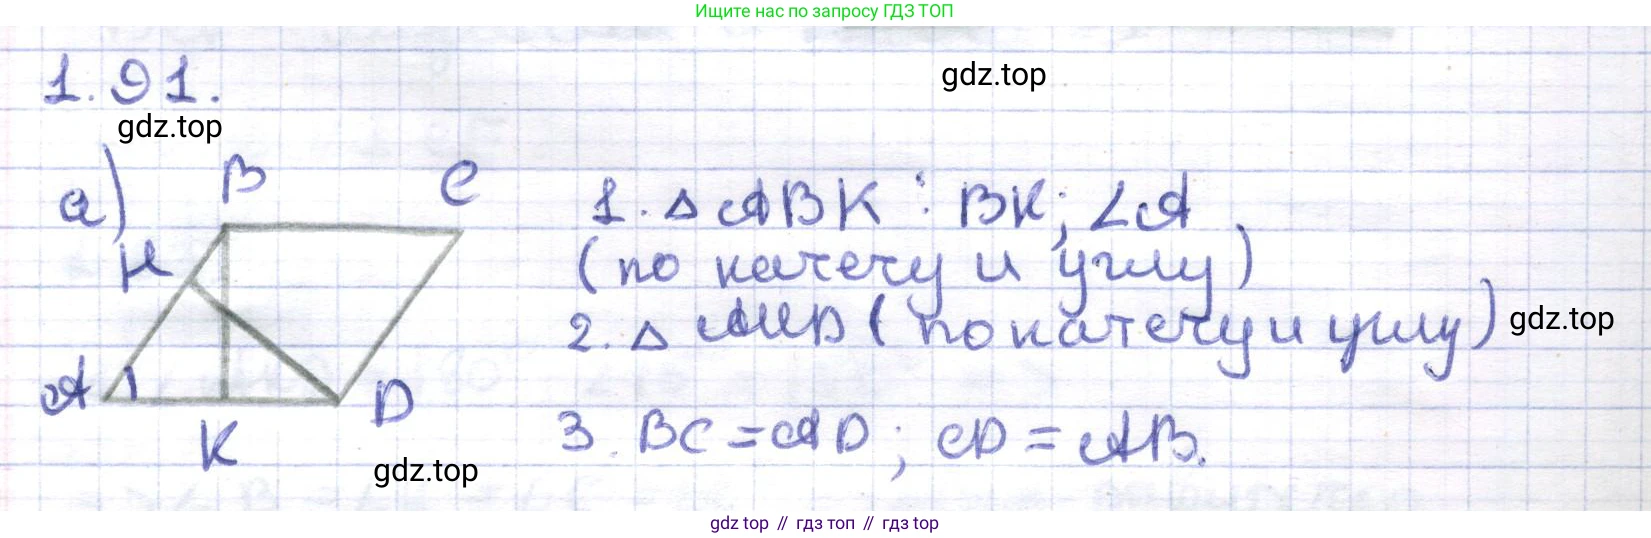 Ищите нас по запросу ГДЗ ТОП
1.91.
gdz.top
gdz.top
а)
B
C
M
A
K
D
1. △ ABK : BK; ∠A
(по катету и углу)
2. △ AMD (по катету и углу)
gdz.top
3. BC = AD; CD = AB.
gdz.top
gdz top // гдз топ // gdz top